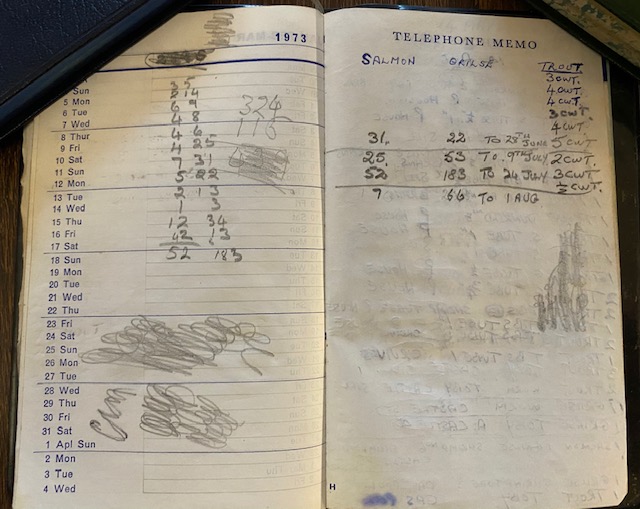 1973
Sun
5 Mon
6 Tue
7 Wed
8 Thur
9 Fri
10 Sat
11 Sun
12 Mon
13 Tue
14 Wed
15 Thu
16 Fri
17 Sat
18 Sun
19 Mon
20 Tue
21 Wed
22 Thu
23 Fri
24 Sat
25 Sun
26 Mon
27 Tue
28 Wed
29 Thu
30 Fri
31 Sat
1 Apl Sun
2 Mon
3 Tue
4 Wed
3 5
2 14
6 9
4 8
4 6
4 25
7 31
5 22
2 13
1 3
12 34
42 13
52 183
324
116
TELEPHONE MEMO
SALMON GRILSE TROUT
3 CWT.
4 CWT
4 CWT
3 CWT
4 CWT
31. 22 TO 28TH JUNE 5 CWT
25. 53 TO 9TH JULY 2 CWT.
52 183 TO 24 JULY 3 CWT
½ CWT.
7 66 TO 1 AUG
H